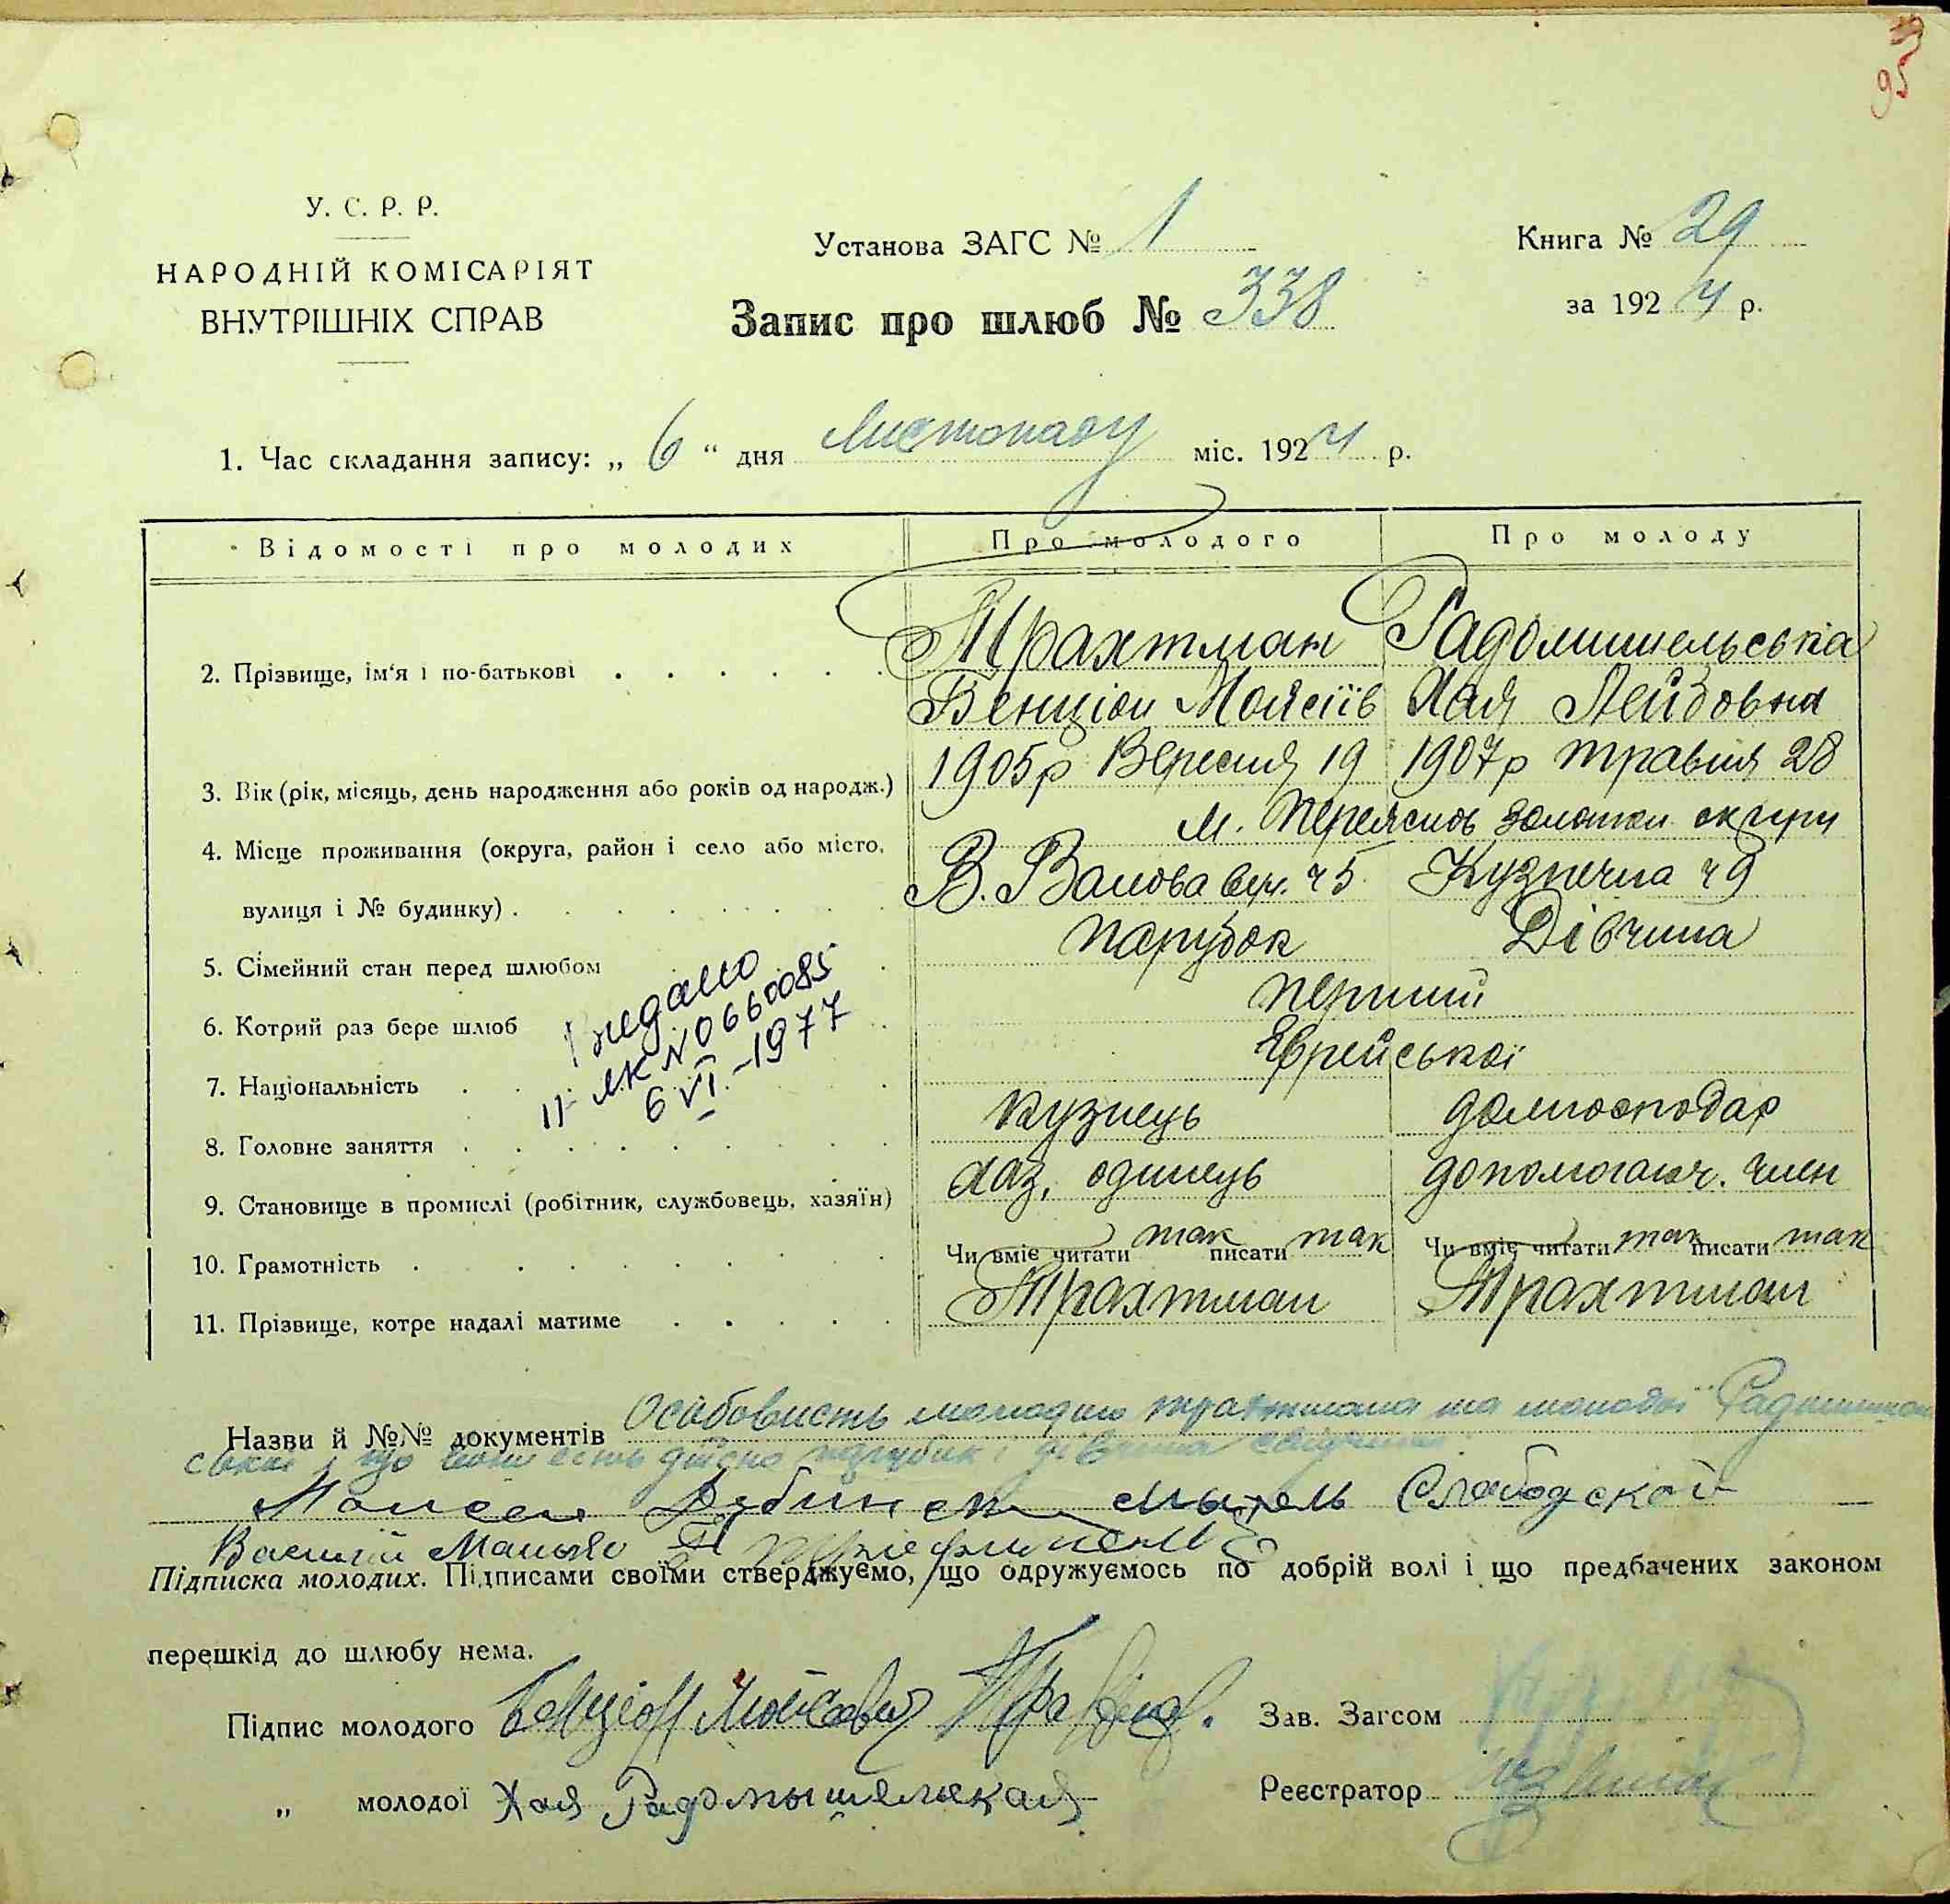 95
У. С. Р. Р.
НАРОДНІЙ КОМІСАРІЯТ
ВНУТРІШНІХ СПРАВ
Установа ЗАГС № 1
Книга № 29
Запис про шлюб № 338
за 1924 р.
1. Час складання запису: „ 6 “ дня Листопаду міс. 1924 р.
Відомості про молодих Про молодого Про молоду
2. Прізвище, ім‘я і по-батькові Трахтман Радомишельська
Бенціон Мойсіїв Хая Лейбовна
3. Вік (рік, місяць, день народження або років од народж.) 1905р Вересня 19 1907р травня 28
4. Місце проживання (округа, район і село або місто, м. Переяслов золотон округи
вулиця і № будинку) В. Валова вул. ч 5 Кузнечна ч 9
5. Сімейний стан перед шлюбом парубок Дівчина
6. Котрий раз бере шлюб перший
7. Національність Єврейської
8. Головне заняття кузнець домгосподар
9. Становище в промислі (робітник, службовець, хазяїн) хаз. одинець допомогаюч. член
10. Грамотність Чи вміє читати так писати так Чи вміє читати так писати так
11. Прізвище, котре надалі матиме Трахтман Трахтман
II ЛК N 0660085
6 VI.-1977
Назви й №№ документів Особовисть молодого Трахтмана та молодої Радомишель
ської що вони есть дійсно парубик і дівчина
Слободской
Василий
Підписка молодих. Підписами своїми стверджуємо, що одружуємось по добрій волі і що предбачених законом
перешкід до шлюбу нема.
Підпис молодого Бенціон Мойсеевич
Зав. Загсом
„ молодої Хая Радомышельская
Реєстратор